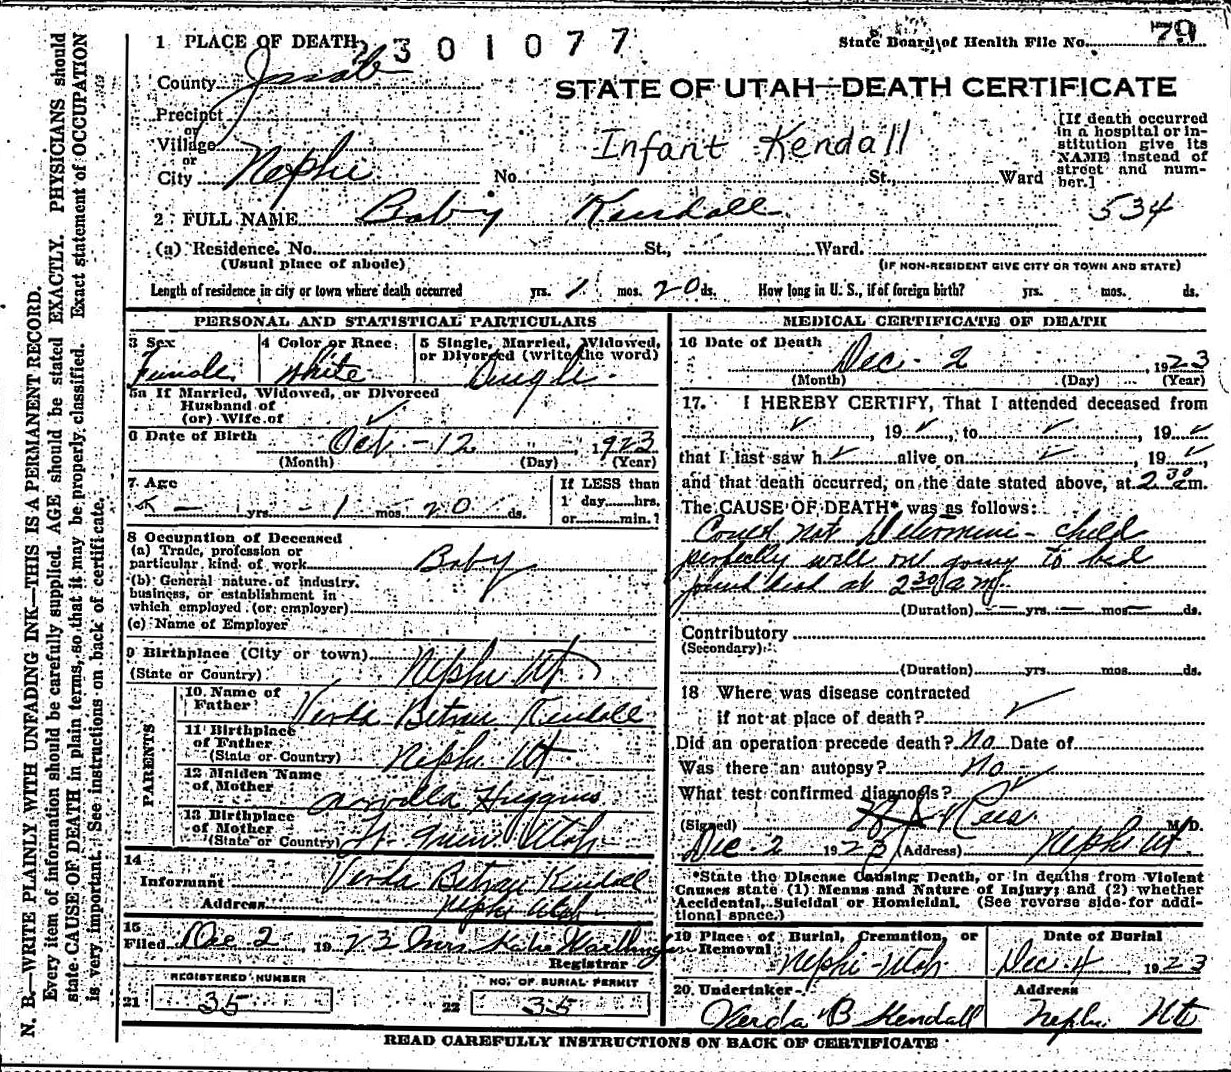 N. B.—WRITE PLAINLY WITH UNFADING INK—THIS IS A PERMANENT RECORD.
Every item of information should be carefully supplied. AGE should be stated EXACTLY. PHYSICIANS should
state CAUSE OF DEATH in plain terms, so that it may be properly classified. Exact statement of OCCUPATION
is very important. See instructions on back of certificate.
1 PLACE OF DEATH
2301077
State Board of Health File No. 79
County Juab
STATE OF UTAH—DEATH CERTIFICATE
Precinct
or
Village
or
City Nephi No. St., Ward
Infant Kendall
[If death occurred
in a hospital or in-
stitution give its
NAME instead of
street and num-
ber.]
534
2 FULL NAME Baby Kendall
(a) Residence. No. St., Ward.
(Usual place of abode) (IF NON-RESIDENT GIVE CITY OR TOWN AND STATE)
Length of residence in city or town where death occurred yrs. 1 mos. 20 ds. How long in U. S., if of foreign birth? yrs. mos. ds.
PERSONAL AND STATISTICAL PARTICULARS
3 Sex
Female
4 Color or Race
White
5 Single, Married, Widowed,
or Divorced (write the word)
Single
5a If Married, Widowed, or Divorced
Husband of
(or) Wife of ✓
6 Date of Birth Oct - 12, 1923
(Month) (Day) (Year)
7 Age
— yrs. - 1 mos. 20 ds.
If LESS than
1 day hrs.
or min.?
8 Occupation of Deceased
(a) Trade, profession or
particular kind of work Baby
(b) General nature of industry,
business, or establishment in
which employed (or employer)
(c) Name of Employer
9 Birthplace (City or town)
(State or Country) Nephi Ut
PARENTS
10. Name of
Father Verda Betrau Kendall
11 Birthplace
of Father
(State or Country) Nephi Ut
12 Maiden Name
of Mother Arvilla Higgins
13 Birthplace
of Mother
(State or Country) Ft. Green Utah
14
Informant Verda Betrau Kendall
Address Nephi Utah
15
Filed Dec 2 1923 Mrs Katie
Registrar
REGISTERED NUMBER
21 35
NO. OF BURIAL PERMIT
22 35
MEDICAL CERTIFICATE OF DEATH
16 Date of Death
Dec - 2, 1923
(Month) (Day) (Year)
17. I HEREBY CERTIFY, That I attended deceased from
✓, 19 ✓, to ✓, 19 ✓
that I last saw h ✓ alive on ✓, 19 ✓
and that death occurred, on the date stated above, at 2 30 am.
The CAUSE OF DEATH* was as follows:
Could not Determine - child
perfectly well on going to bed
found dead at 2 30 a m.
(Duration) — yrs. — mos — ds.
Contributory
(Secondary)
(Duration) yrs. mos. ds.
18 Where was disease contracted
if not at place of death? ✓
Did an operation precede death? No Date of
Was there an autopsy? No
What test confirmed diagnosis? ✓
(Signed) Rees M.D.
Dec - 2 1923 (Address) Nephi Ut
*State the Disease Causing Death, or in deaths from Violent
Causes state (1) Means and Nature of Injury; and (2) whether
Accidental, Suicidal or Homicidal. (See reverse side for addi-
tional space.)
19 Place of Burial, Cremation, or
Removal
Nephi - Utah
Date of Burial
Dec 4 1923
20 Undertaker
Verda B Kendall
Address
Nephi Ut
READ CAREFULLY INSTRUCTIONS ON BACK OF CERTIFICATE